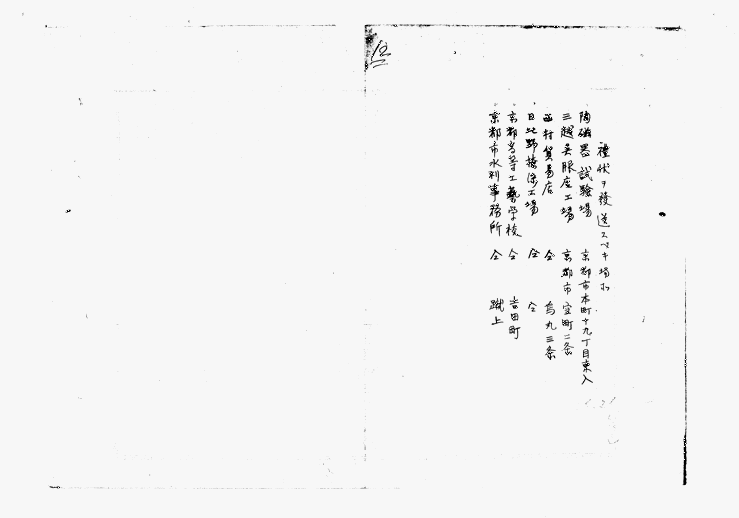 禮状ヲ發送スベキ場所
陶磁器試驗場 京都市本町十九丁目東入
三越呉服店工場 京都市室町二条
西村貿易店 仝 烏丸三条
日比野 工場 仝 仝
京都高等工藝学校 仝 吉田町
京都市水利事務所 仝 蹴上